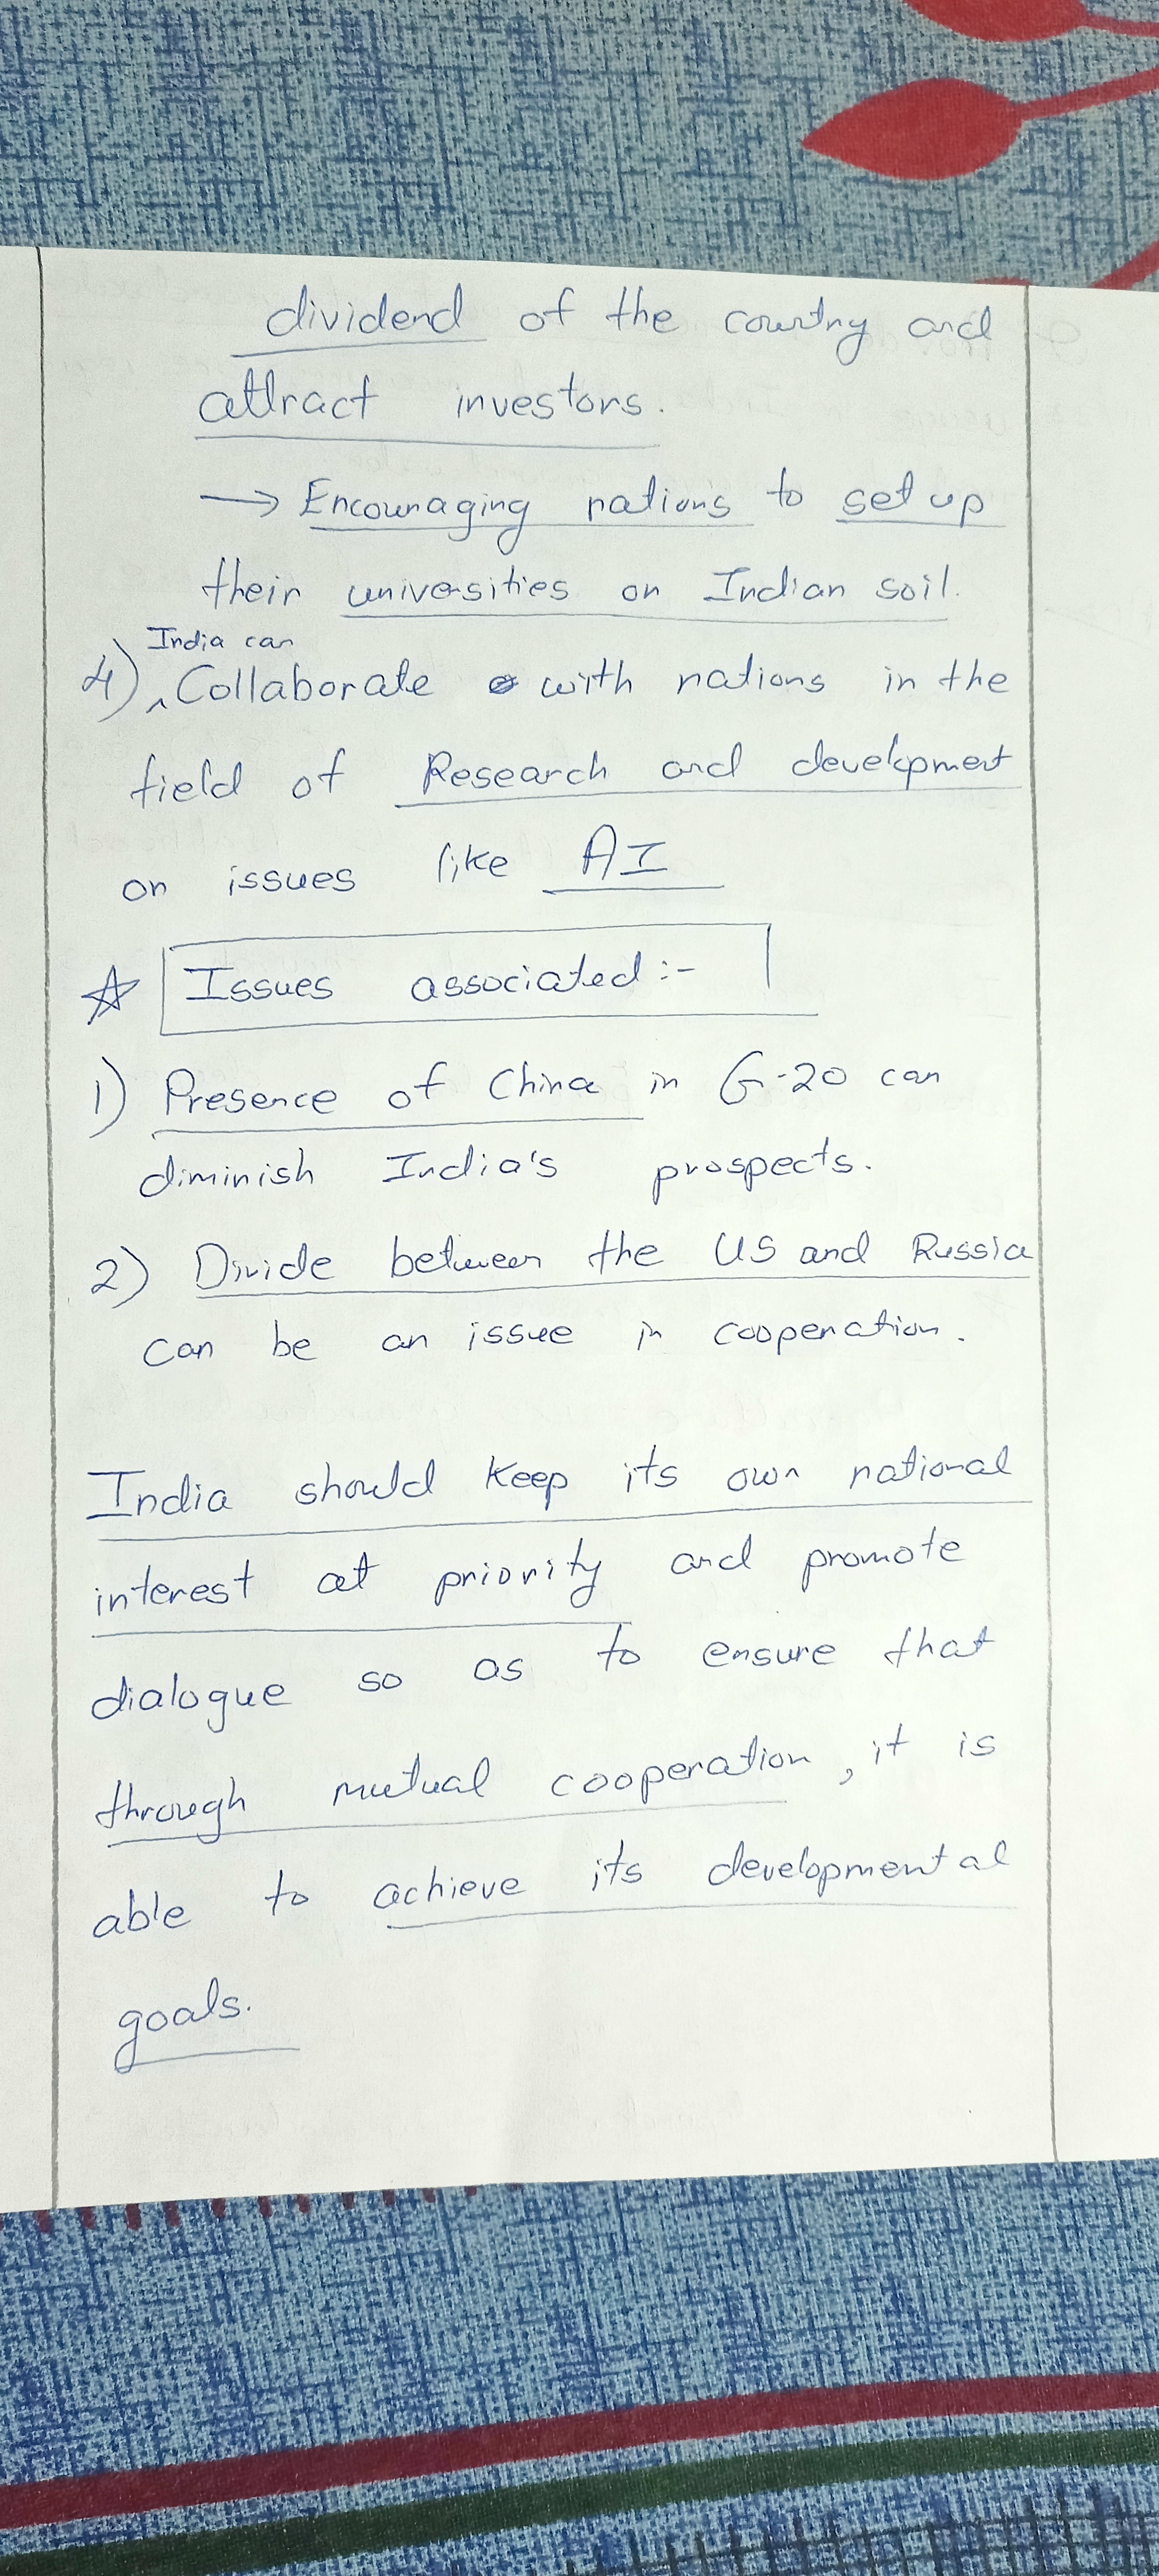 dividend of the country and
attract investors.
→ Encouraging nations to set up
their universities on Indian soil.
India can
4) ^ Collaborate with nations in the
field of Research and development
on issues like AI
☆ Issues associated :-
1) Presence of China in G-20 can
diminish India's prospects.
2) Divide between the US and Russia
can be an issue in cooperation.
India should keep its own national
interest at priority and promote
dialogue so as to ensure that
through mutual cooperation, it is
able to achieve its developmental
goals.